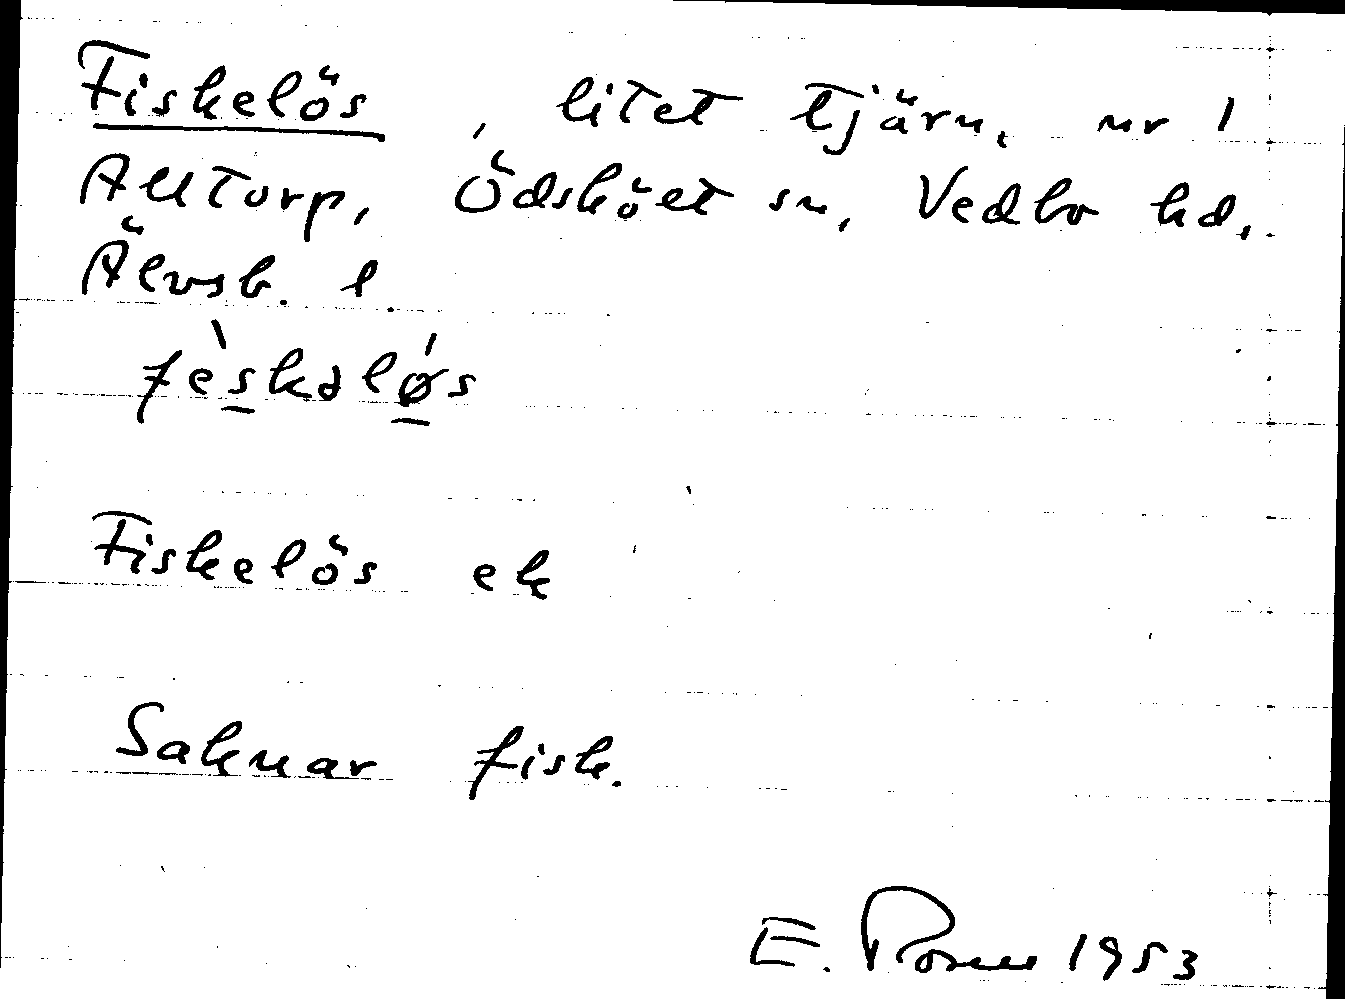 Fiskelös, litet tjärn, nr 1
Alltorp, Ödsköet sn, Vedbo hd,
Älvsb. l.
fèskəløs
Fiskelös ek
Saknar fisk.
E. 1953